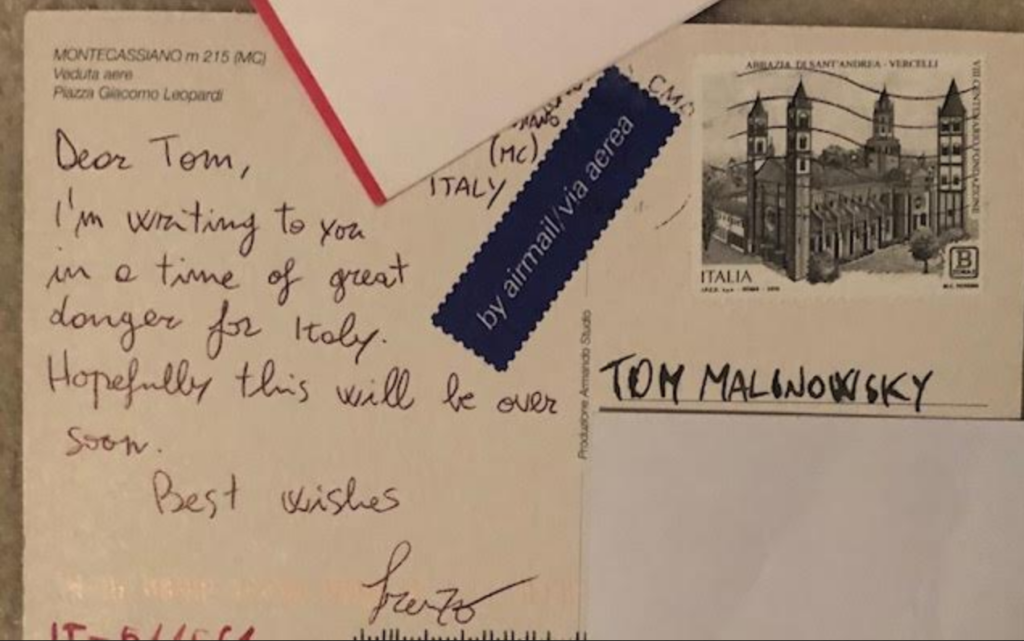 MONTECASSIANO m 215 (MC)
Veduta aere
Piazza Giacomo Leopardi
Dear Tom,
I'm writing to you
in a time of great
danger for Italy.
Hopefully this will be over
soon.
Best wishes
(MC)
ITALY
by airmail/via aerea
Produzione Armando Studio
CMP
ABBAZIA DI SANT'ANDREA - VERCELLI
VIII CENTENARIO FONDAZIONE
ITALIA
B
TOM MALINOWSKY